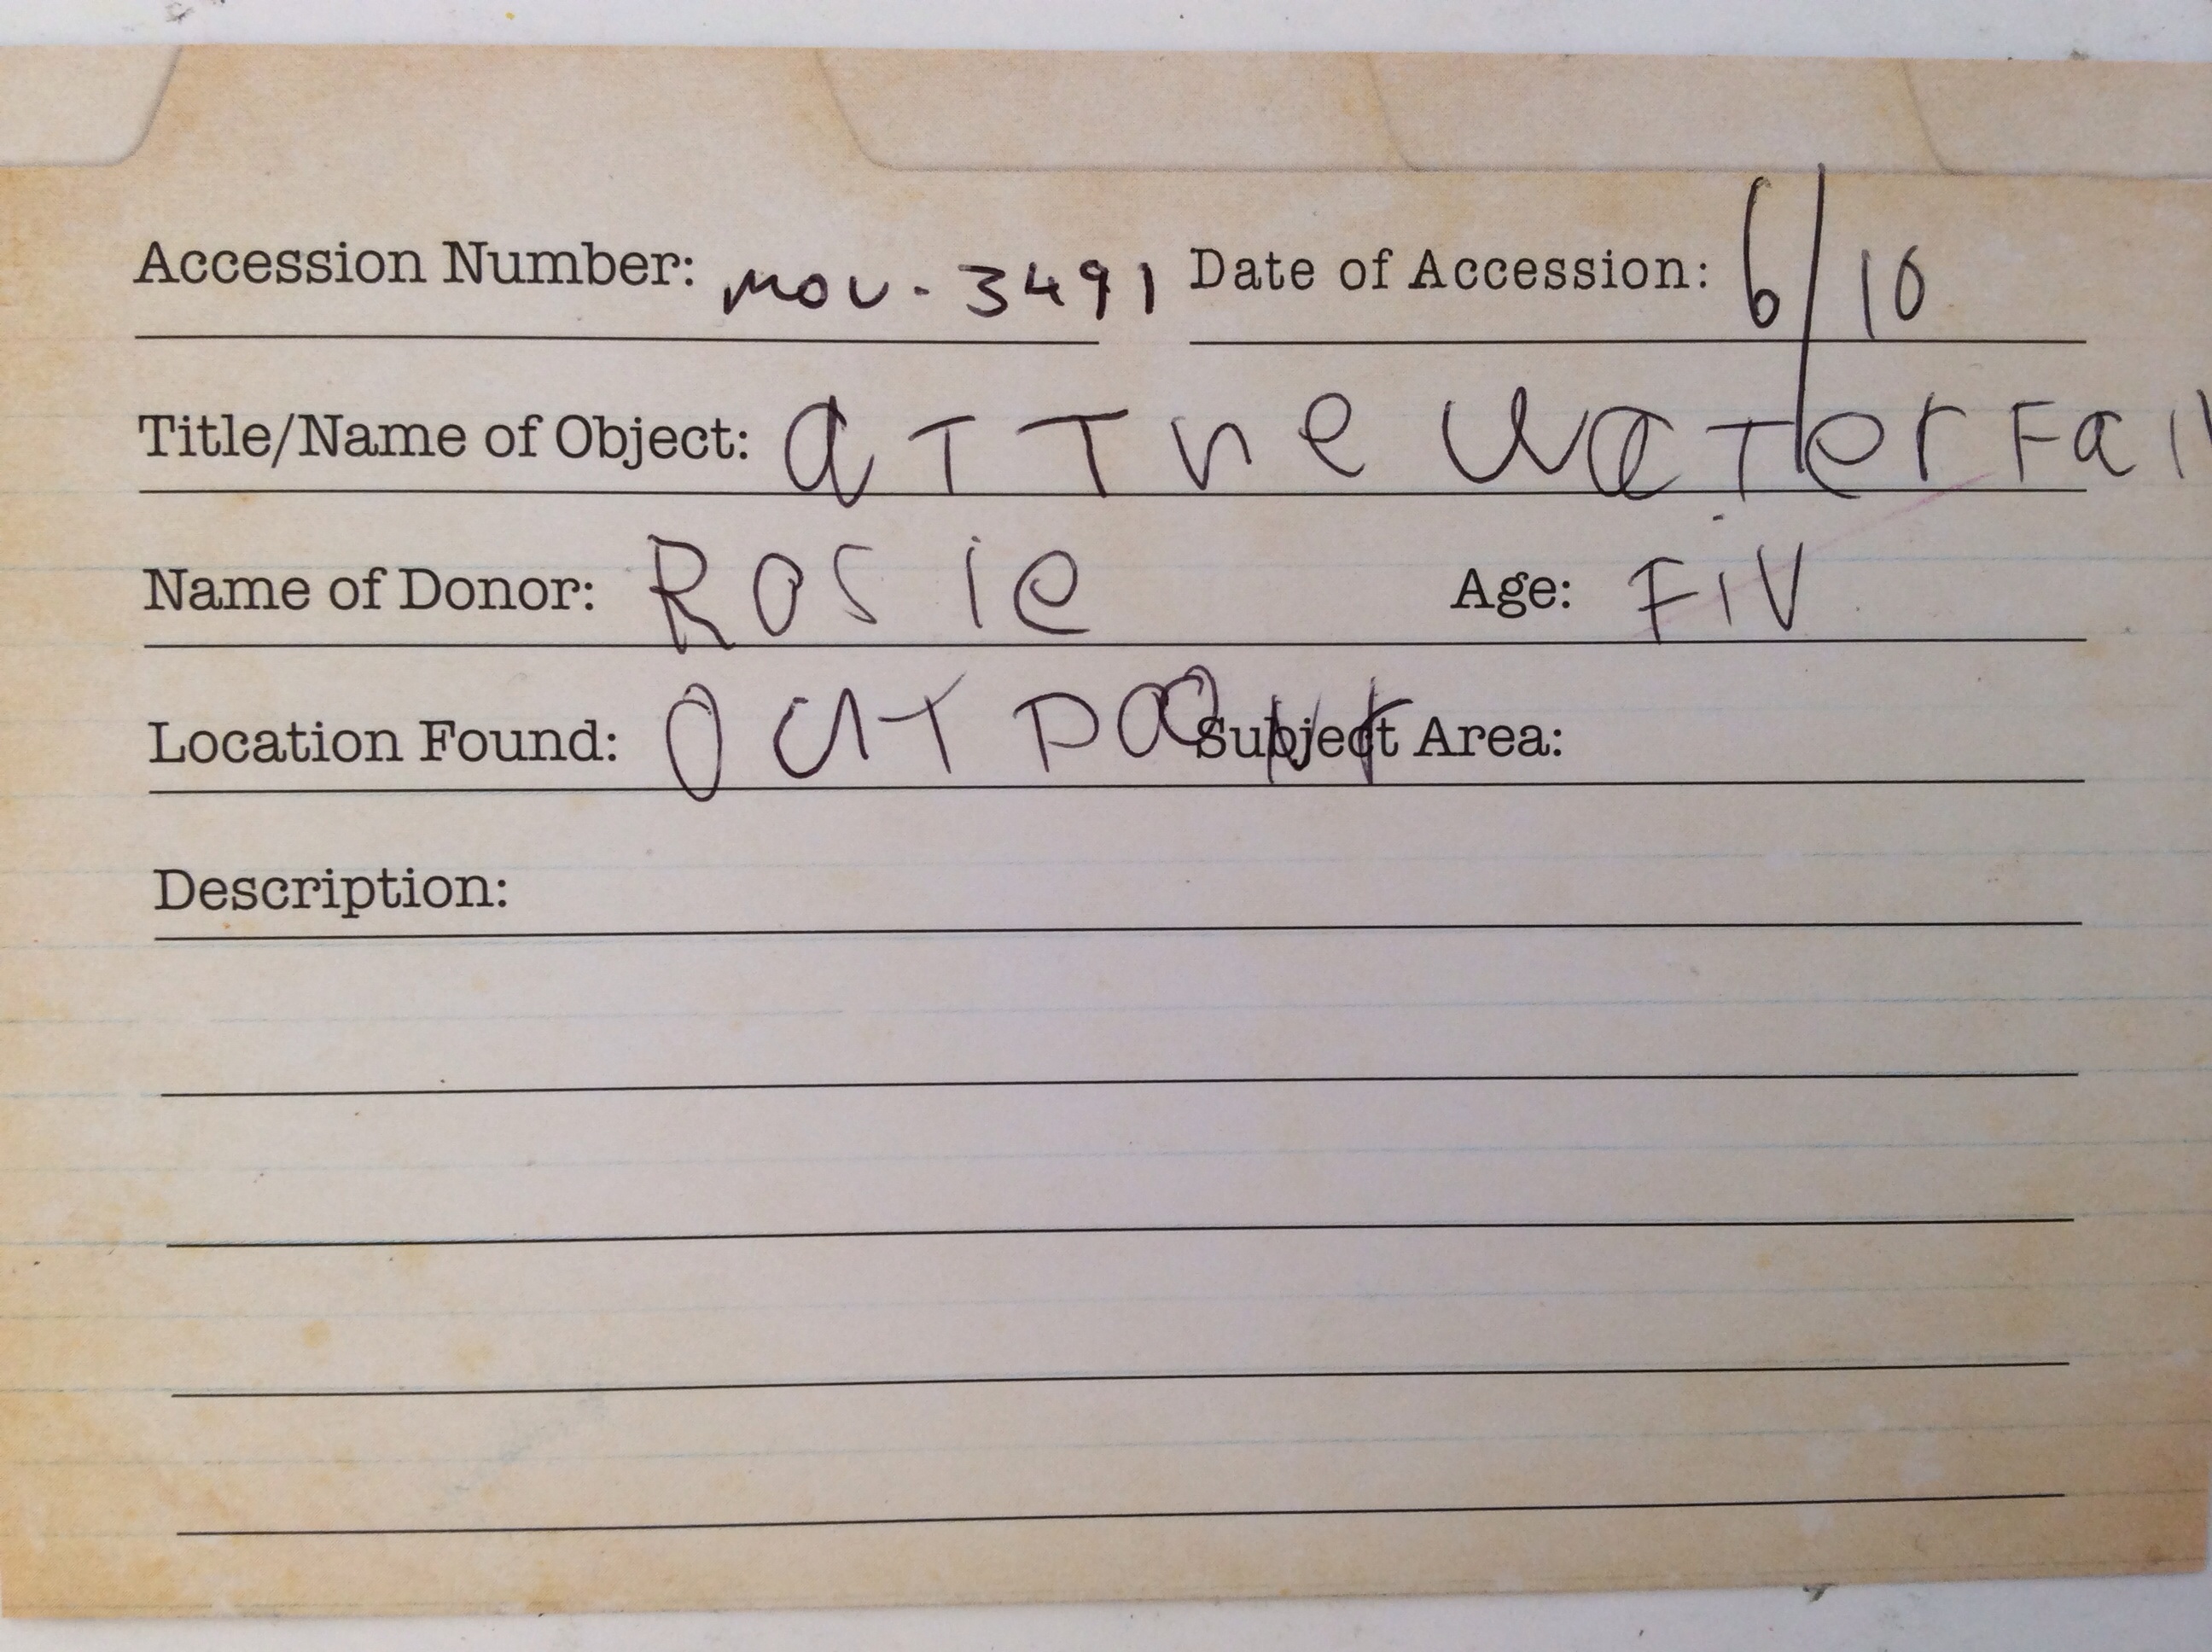 Accession Number: mou-3491 Date of Accession: 6/10
Title/Name of Object: aT The waTerFall
Name of Donor: Rosie Age: FiV
Location Found: Subject Area:
Description: